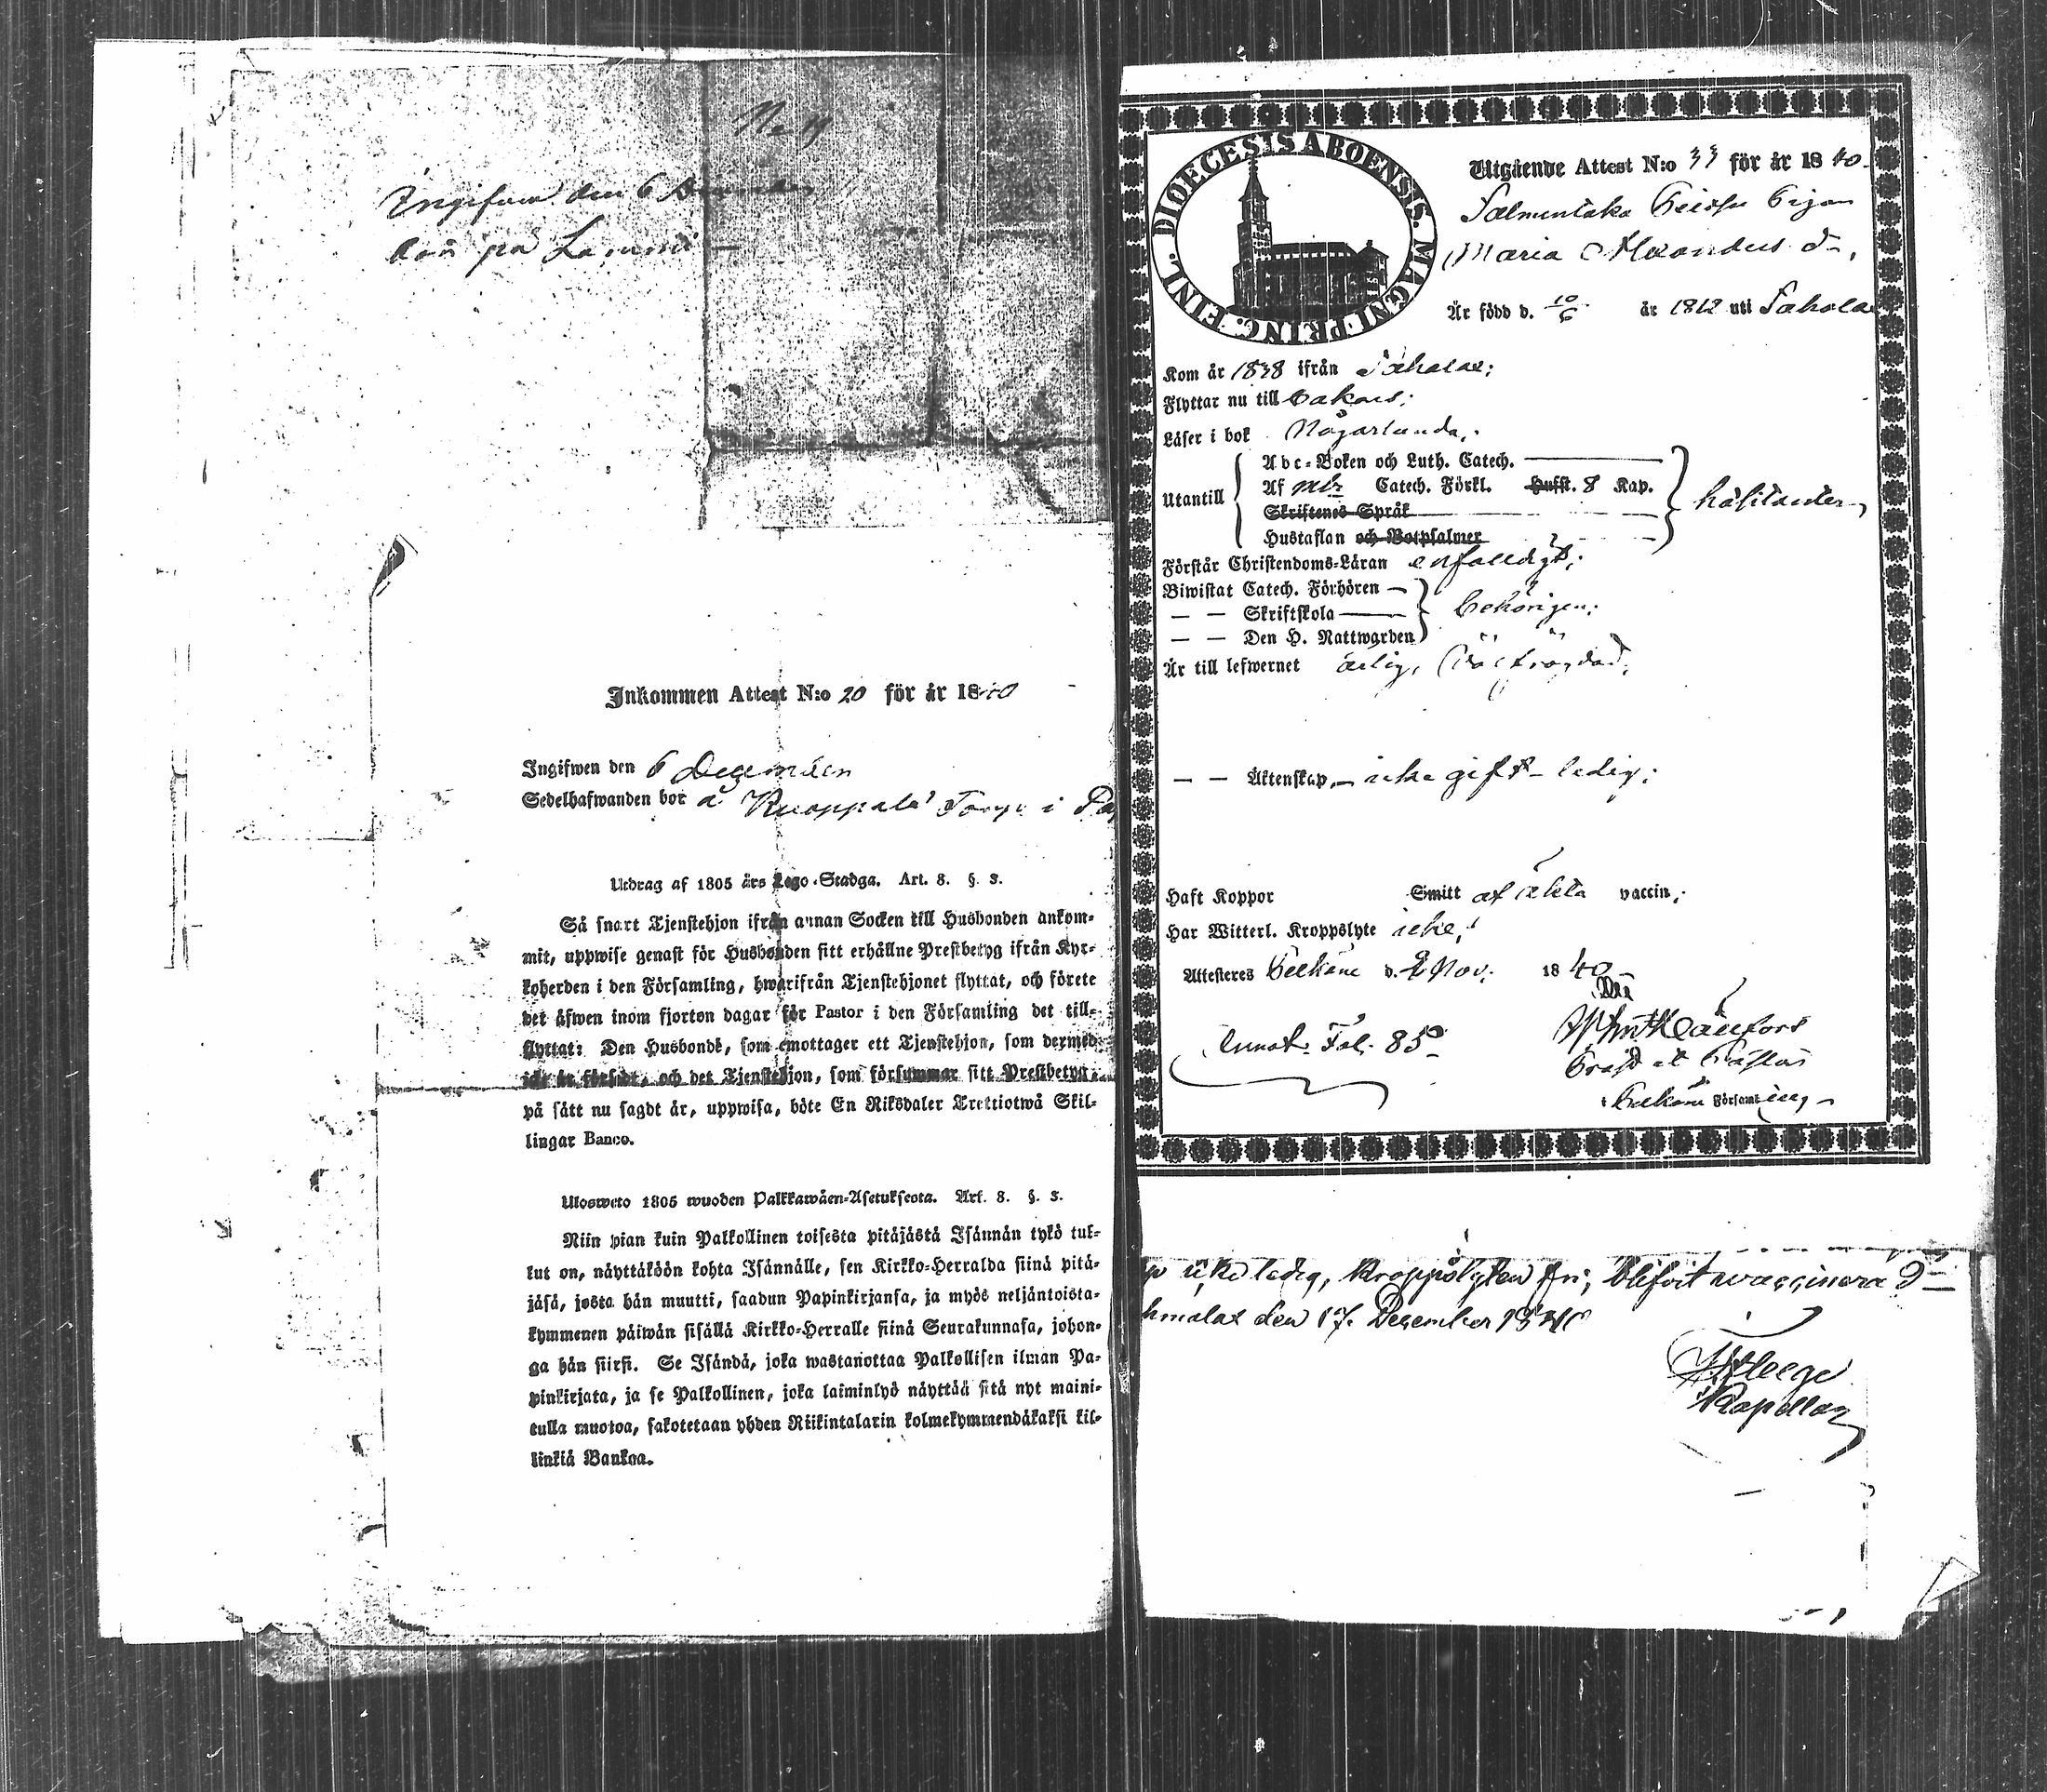 No 19
Ingifven den 6 December
bor på Lammi
Inkommen Attest N:o 20 för år 1840
Ingifwen den 6 December
Sedelhafwanden bor å Kuoppala Torp i
Utdrag af 1805 års Lego-Stadga. Art. 8. §. 3.
Så snart Tjenstehjon ifrån annan Socken till Husbonden ankom-
mit, uppwise genast för Husbonden sitt erhållne Prestbetyg ifrån Kyr-
koherden i den Församling, hwarifrån Tjenstehjonet flyttat, och förete
det äfwen inom fjorton dagar för Pastor i den Församling det till-
flyttat: Den Husbonde, som emottager ett Tjenstehjon, som dermed
icke är försedt, och det Tjenstehjon, som försummar sitt Prestbetyg,
på sätt nu sagdt är, uppwisa, böte En Riksdaler Trettiotwå Skil-
lingar Banco.
Ulosweto 1805 wuoden Palkkawäen-Asetuksesta. Art. 8. §. 3.
Niin pian kuin Palkollinen toisesta pitäjästä Isännän tykö tul-
lut on, näyttäköön kohta Isännälle, sen Kirkko-Herralda siinä pitä-
jäsä, josta hän muutti, saadun Papinkirjansa, ja myös neljäntoista-
kymmenen päiwän sisällä Kirkko-Herralle siinä Seurakunnasa, johon-
ga hän siirsi. Se Isändä, joka wastanottaa Palkollisen ilman Pa-
pinkirjata, ja se Palkollinen, joka laiminlyö näyttää sitä nyt maini-
tulla muotoa, sakotetaan yhden Riikintalarin kolmekymmendäkaksi kil-
linkiä Bankoa.
DIOECESIS ABOENSIS. MAGNI PRINC. FINL.
Utgående Attest N:o 33 för år 1840.
Salmentaka Pigan
Maria d:r,
Är född d. 10/6 år 1812 uti Sahalax
Kom år 1838 ifrån Sahalax;
Flyttar nu till
Läser i bok Någorlunda,
Abc-Boken och Luth. Catech.
Utantill
Af Catech. Förkl. Hufst. 8 Kap.
Skriftenes Språk
Hustaflan och Botpsalmer
Förstår Christendoms-Läran enfaldigt;
Biwistat Catech. Förhören
— — Skriftskola behörigen;
— — Den H. Nattwarden
Är till lefwernet ärlig, väl frägdad;
— — Äktenskap, icke gift ledig;
Haft Koppor Smitt af äkta vaccin;
Har Witterl. Kroppslyte icke;
Attesteres Pelkäne d. 2 Nov. 1840
Annot. Fol. 85
Prost et Pastor
i Pelkäne Församling
icke ledig, kroppslyten fri, blifvit vaccinerad
den 17 December 1840
Kapellan